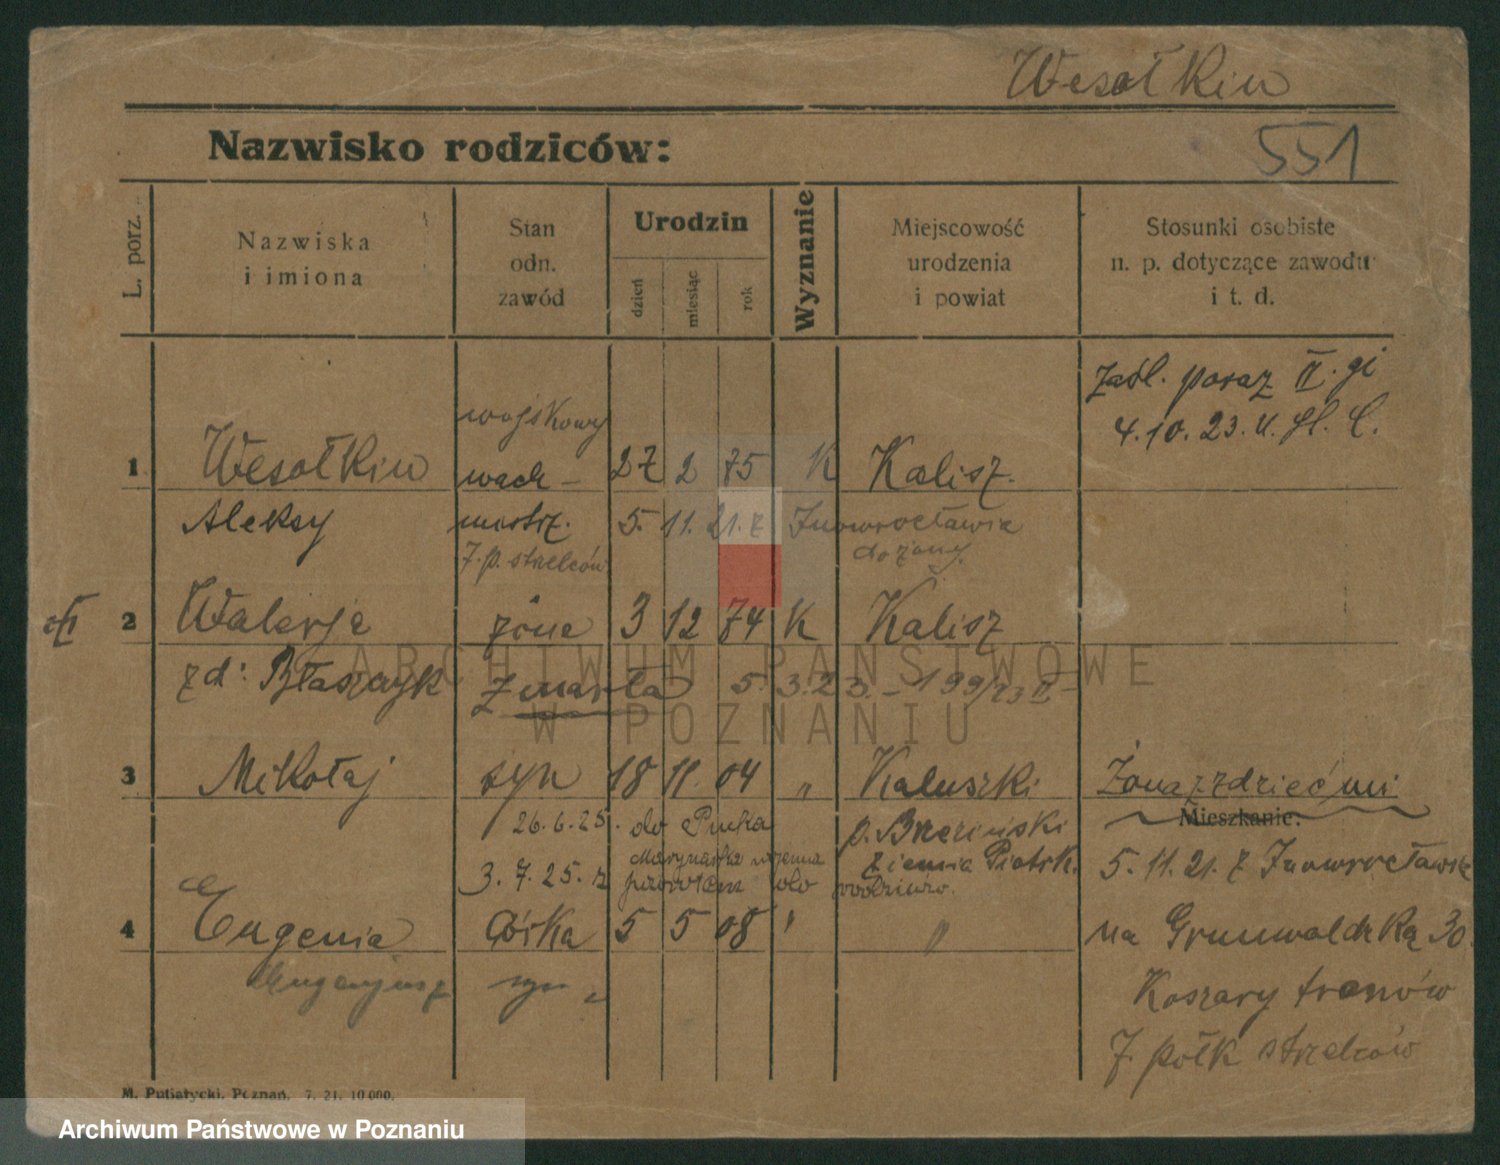 Wesołkin
Nazwisko rodziców:
551
L. porz.
Nazwiska
i imiona
Stan
odn.
zawód
Urodzin
dzień
miesiąc
rok
Wyznanie
Miejscowość
urodzenia
i powiat
Stosunki osobiste
n. p. dotyczące zawodu
i t. d.
1 Wesołkin wojskowy wach- 27 2 75 K Kalisz.
Aleksy mistrz. 5. 11. 21. z Inowrocławia
7. p. strzelców do żony.
zaśl. poraz II. gi
4. 10. 23.
2 Walerja żona 3 12 74 K Kalisz
zd: Błaszczyk zmarła 5. 3. 23. - 199/23 II
3 Mikołaj syn 18 11. 04 " Kaluszki
26. 6. 25. do Pucka p. Brzeziński
Marynarka wojenna ziemia Piotrk.
3. 7. 25. z powrotem do rodziców.
4 Eugenia córka 5 5 08 " "
Eugenjusz syn
Żona z dziećmi
Mieszkanie:
5. 11. 21. z Inowrocławia
na Grunwaldzką 30.
Koszary tronów
7. pólk strzelców
M. Putiatycki, Poznań. 7. 21. 10 000.
ARCHIWUM PAŃSTWOWE
W POZNANIU
Archiwum Państwowe w Poznaniu